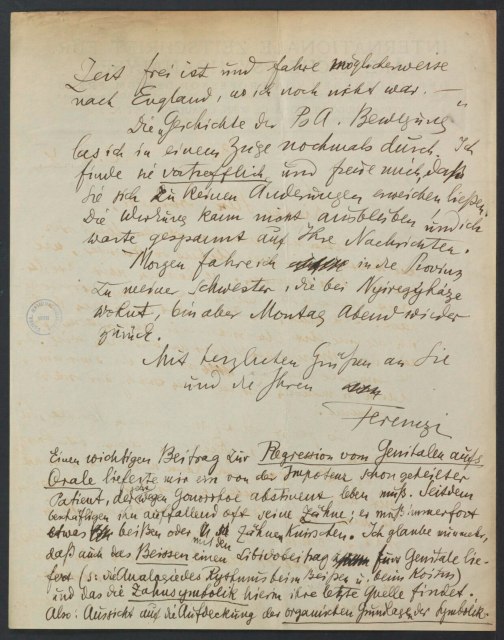 Zeit frei ist und fahre möglicherweise
nach England, wo ich noch nicht war. —
Die „Geschichte der PsA. Bewegung“
las ich in einem Zuge nochmals durch. Ich
finde sie vortrefflich und freue mich, daß
Sie sich zu keinen Änderungen erweichen ließen.
Die Wirkung kann nicht ausbleiben und ich
warte gespannt auf Ihre Nachrichten.
Morgen fahre ich in die Provinz
zu meiner Schwester, die bei Nyiregyháza
wohnt, bin aber Montag Abend wieder
zurück.
Mit herzlichen Grüßen an Sie
und die Ihren
Ferenczi
Einen wichtigen Beitrag zur Regression vom Genitalen aufs
Orale lieferte mir ein von der Impotenz schon geheilter
Patient, der wegen Gonorrhoe abstinent leben muß. Seitdem
beschäftigen ihn auffallend oft seine Zähne; er muß immerfort
etwas beißen oder mit den Zähnen knirschen. Ich glaube nunmehr,
daß auch das Beissen einen Libidobeitrag fürs Genitale lie-
fert (s: die Analogie des Rythmus beim beißen u. beim Koitus)
und das die Zahnsymbolik hierin ihre letzte Quelle findet.
Also: Aussicht auf die Aufdeckung der organischen Grundlagen der Symbolik.